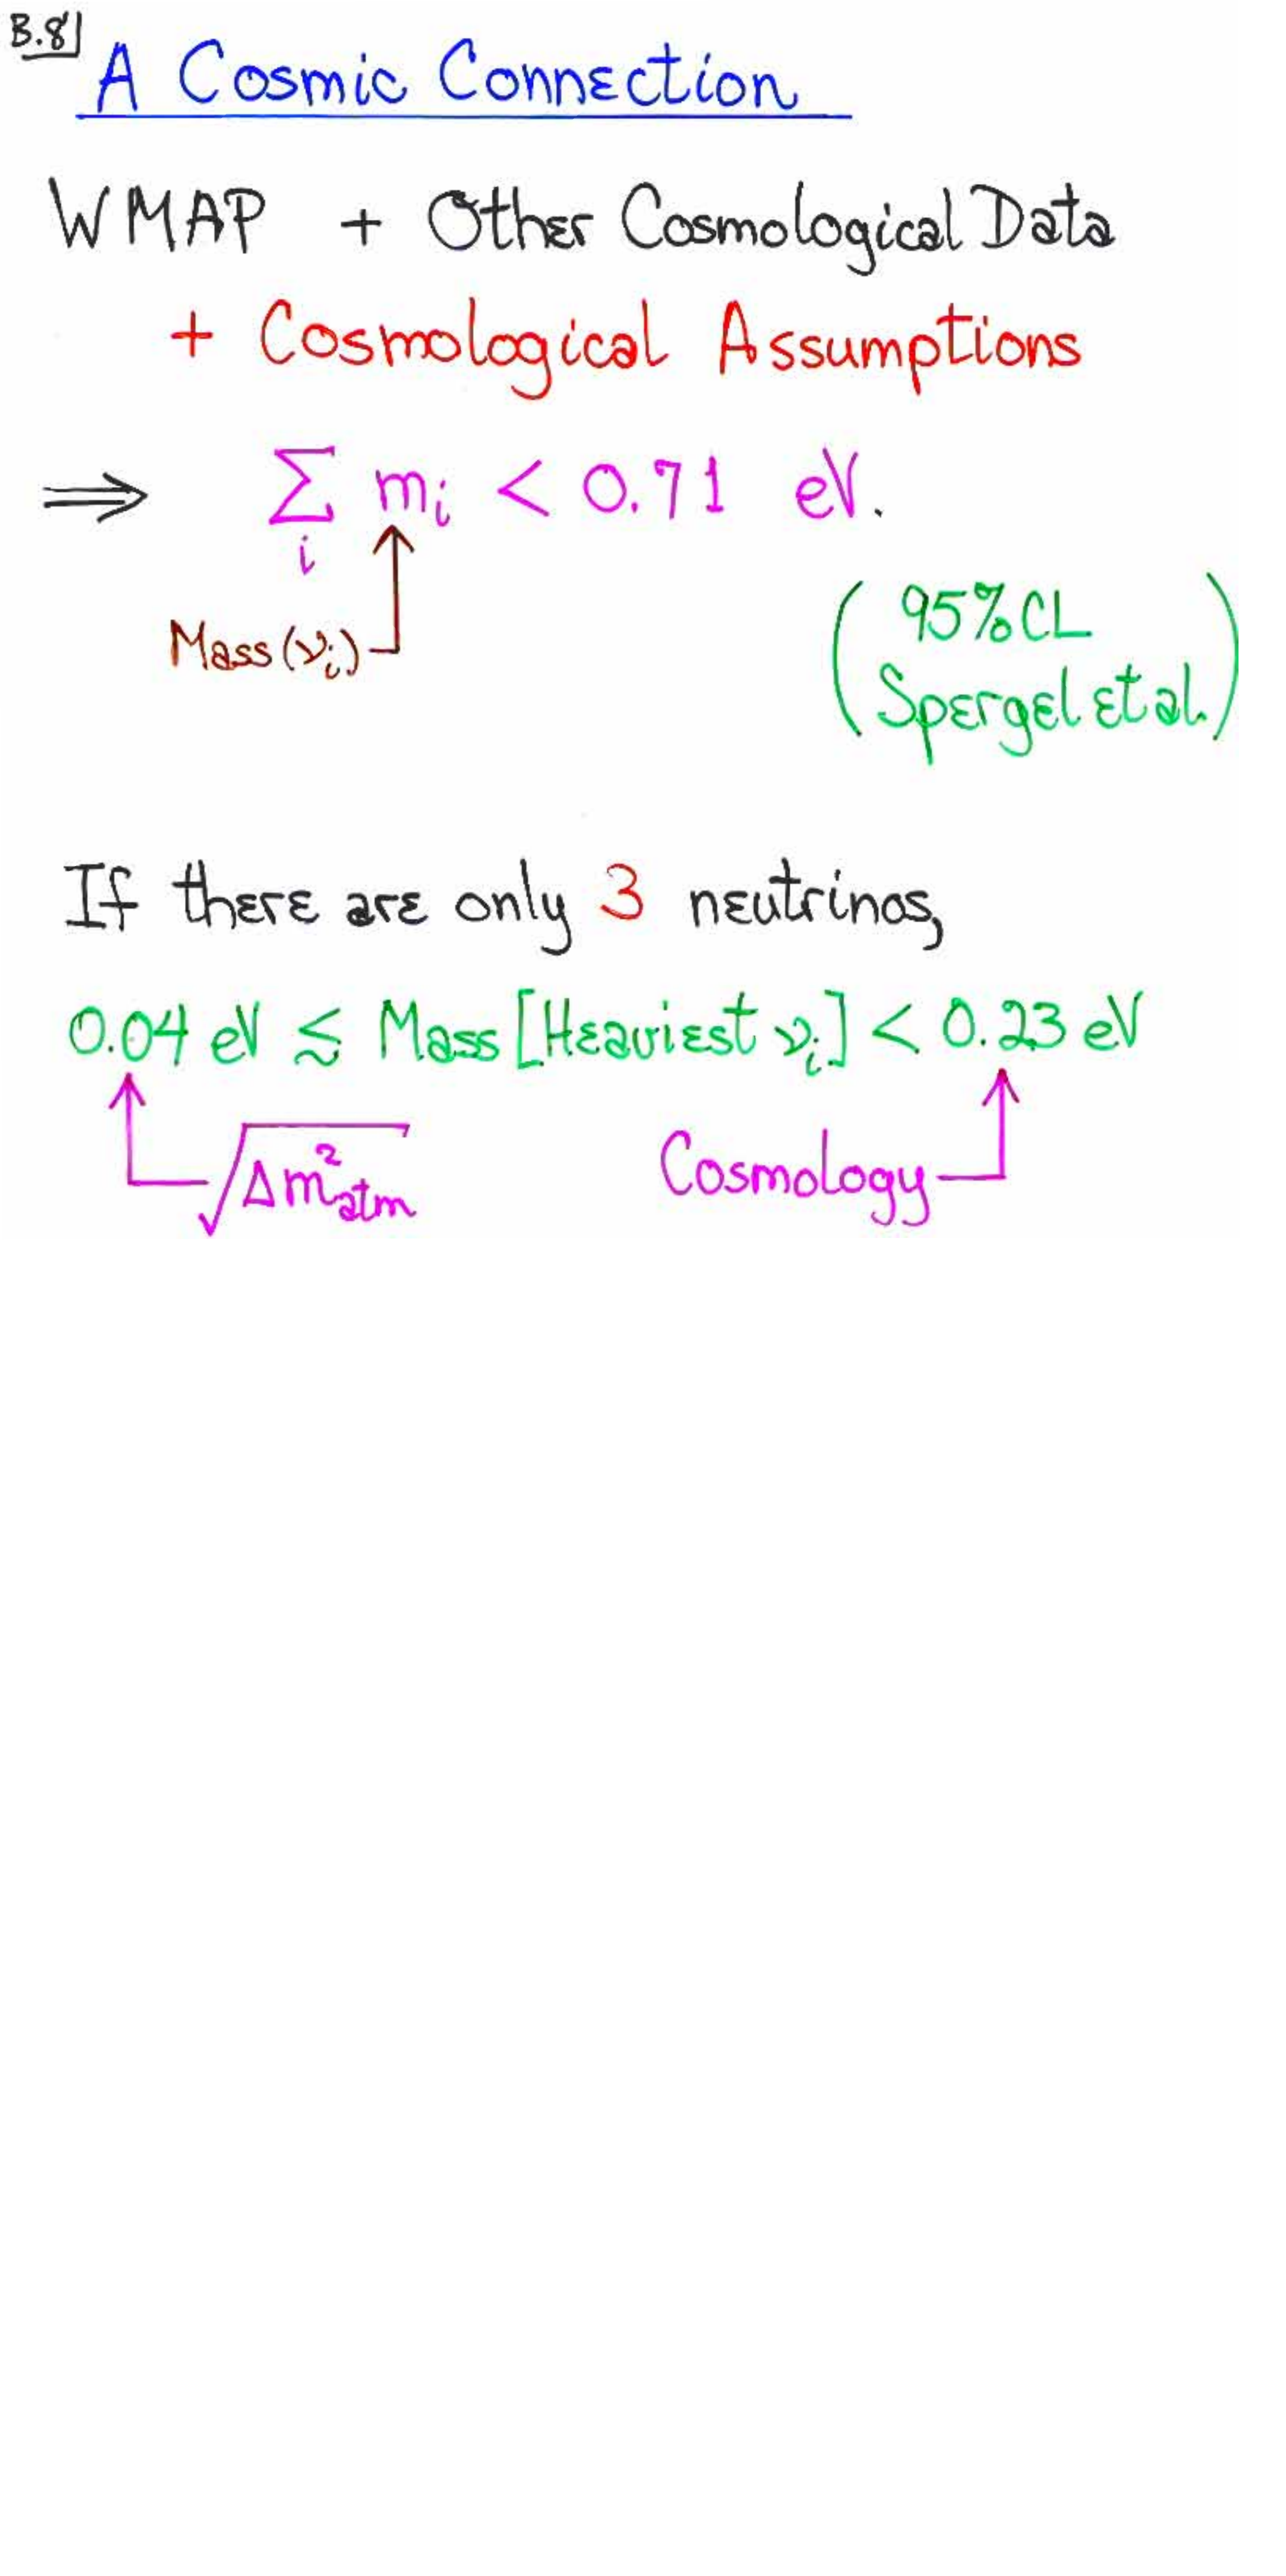 B.8
A Cosmic Connection
WMAP + Other Cosmological Data
+ Cosmological Assumptions
⟹ ∑ mᵢ < 0.71 eV.
i
Mass(νᵢ)
(95% CL
Spergel et al.)
If there are only 3 neutrinos,
0.04 eV ≲ Mass[Heaviest νᵢ] < 0.23 eV
√Δm²atm Cosmology